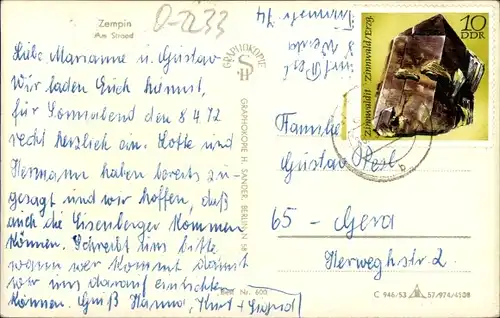 Zempin
Am Strand
D-2233
Liebe Marianne u. Gustav
Wir laden Euch hiermit,
für Sonnabend den 8 4 72
recht herzlich ein. Lotte und
Hermann haben bereits zu-
gesagt und wir hoffen, daß
auch die Eisenberger kommen
können. Schreibt uns bitte
wann wer kommt damit
wir uns darauf einrichten
können. Gruß Hanna, Kurt + Sigrid
GRAPHOKOPIE
SH
GRAPHOKOPIE H. SANDER, BERLIN N 58
Best. Nr. 600
10
DDR
"Zinnwaldit" Zinnwald/Erzg.
Familie
Gustav
65 - Gera
Herweghstr. 2
C 946/53 57/974/4508